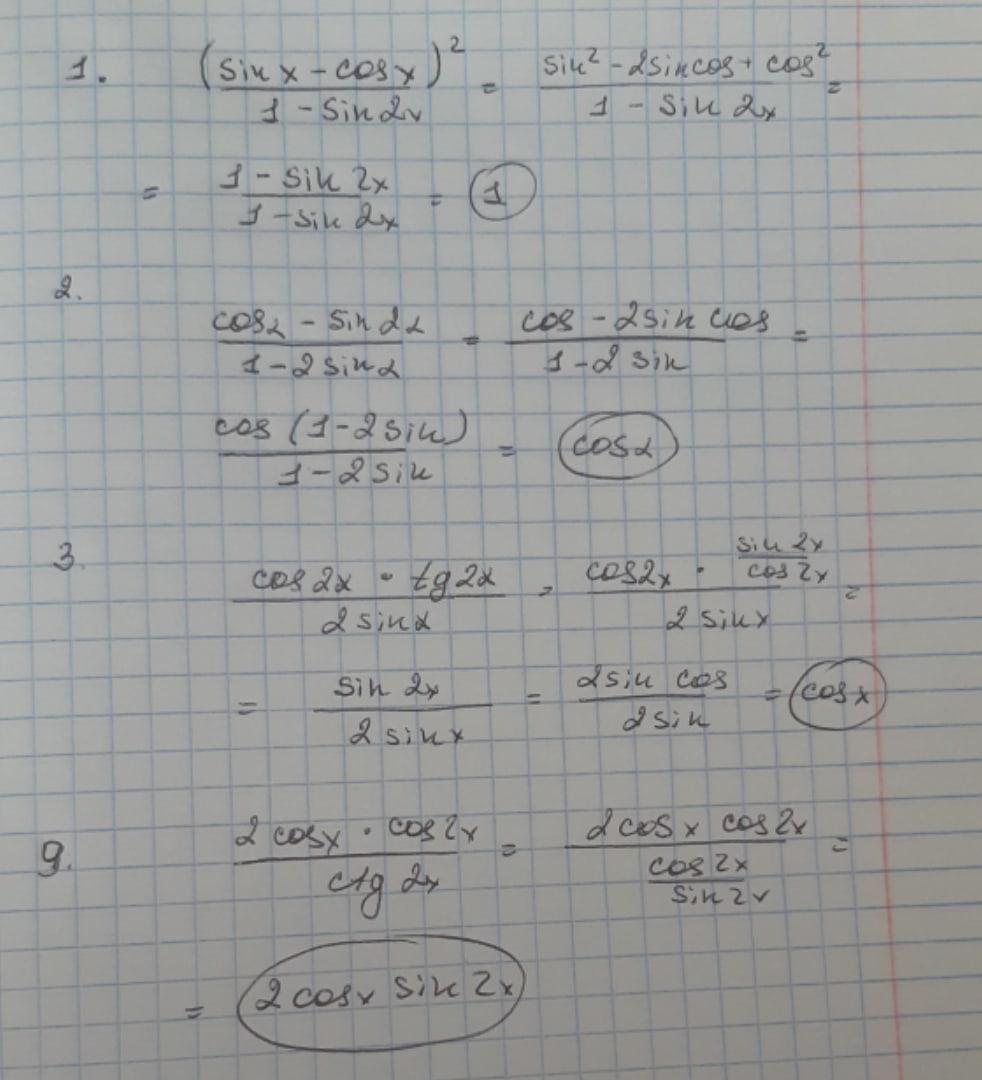 1. (sin x - cos x)² / 1 - sin 2x = sin² - 2sin cos + cos² / 1 - sin 2x =
= 1 - sin 2x / 1 - sin 2x = 1
2. cos α - sin 2α / 1 - 2 sin α = cos - 2 sin cos / 1 - 2 sin =
cos (1 - 2 sin) / 1 - 2 sin = cos α
3. cos 2x · tg 2x / 2 sin x = cos 2x · sin 2x / cos 2x / 2 sin x =
= sin 2x / 2 sin x = 2 sin cos / 2 sin = cos x
9. 2 cos x · cos 2x / ctg 2x = 2 cos x cos 2x / cos 2x / sin 2x =
= 2 cos x sin 2x